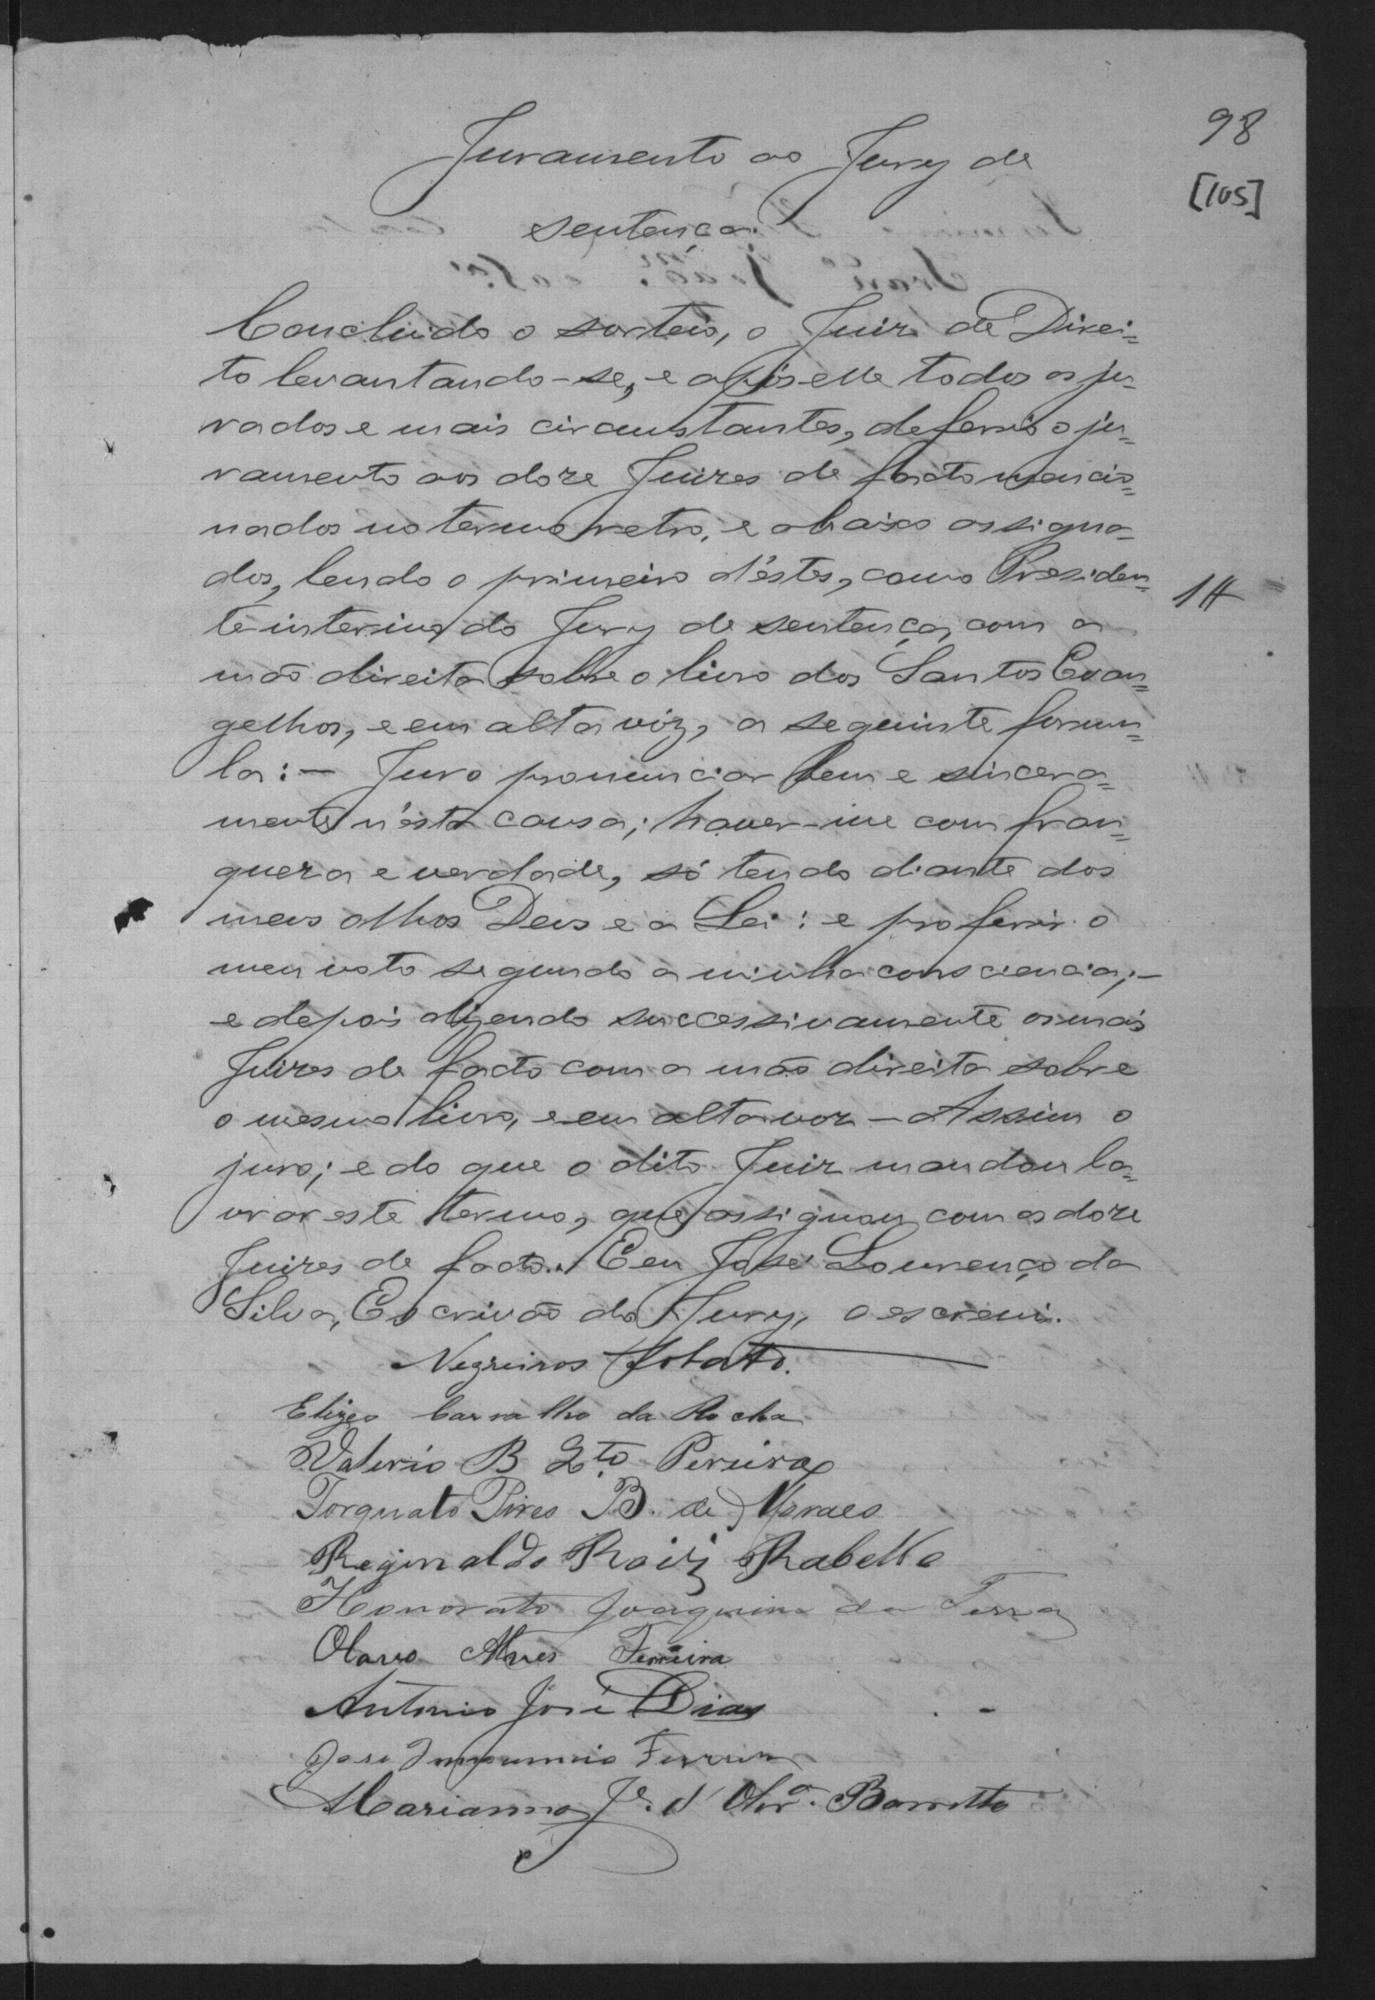 98
[105]
Juramento ao Jury de
sentença.
Concluido o sorteio, o Juiz de Direi=
to levantando-se, e após elle todos os ju-
rados e mais circunstantes, deferio o ju-
ramento aos doze Juizes de facto mencio=
nados no termo retro, e abaixo assigna-
dos, lendo o primeiro d'éstes, como Presiden=
te interino do Jury de sentença, com a
mão direita sobre o livro dos Santos Evan=
gelhos, e em alta vóz, a seguinte formu=
la: — Juro pronunciar bem e sincera=
mente n'ésta causa; haver-me com fran=
queza e verdade, só tendo diante dos
meus olhos Deus e a Lei: e proferir o
meu voto segundo a minha consciencia; —
e depois dizendo successivamente os mais
Juizes de facto com a mão direita sobre
o mesmo livro, e em alta voz — Assim o
juro; e do que o dito Juiz mandou la=
vrar este termo, que assignou com os doze
Juizes de facto. Eu José Lourenço da
Silva, Escrivão do Jury, o escrevi.
Negreiros Lobato.
Elizeo Carvalho da Rocha
Valerio B Pereira
Torquato Pires B. de Moraes
Reginaldo Roiz Rabello
Honorato Joaquim da
Olavo Alves Ferreira
Antonio José Dias
José Ferreira
Marianno Je. d'Olivra. Barretto